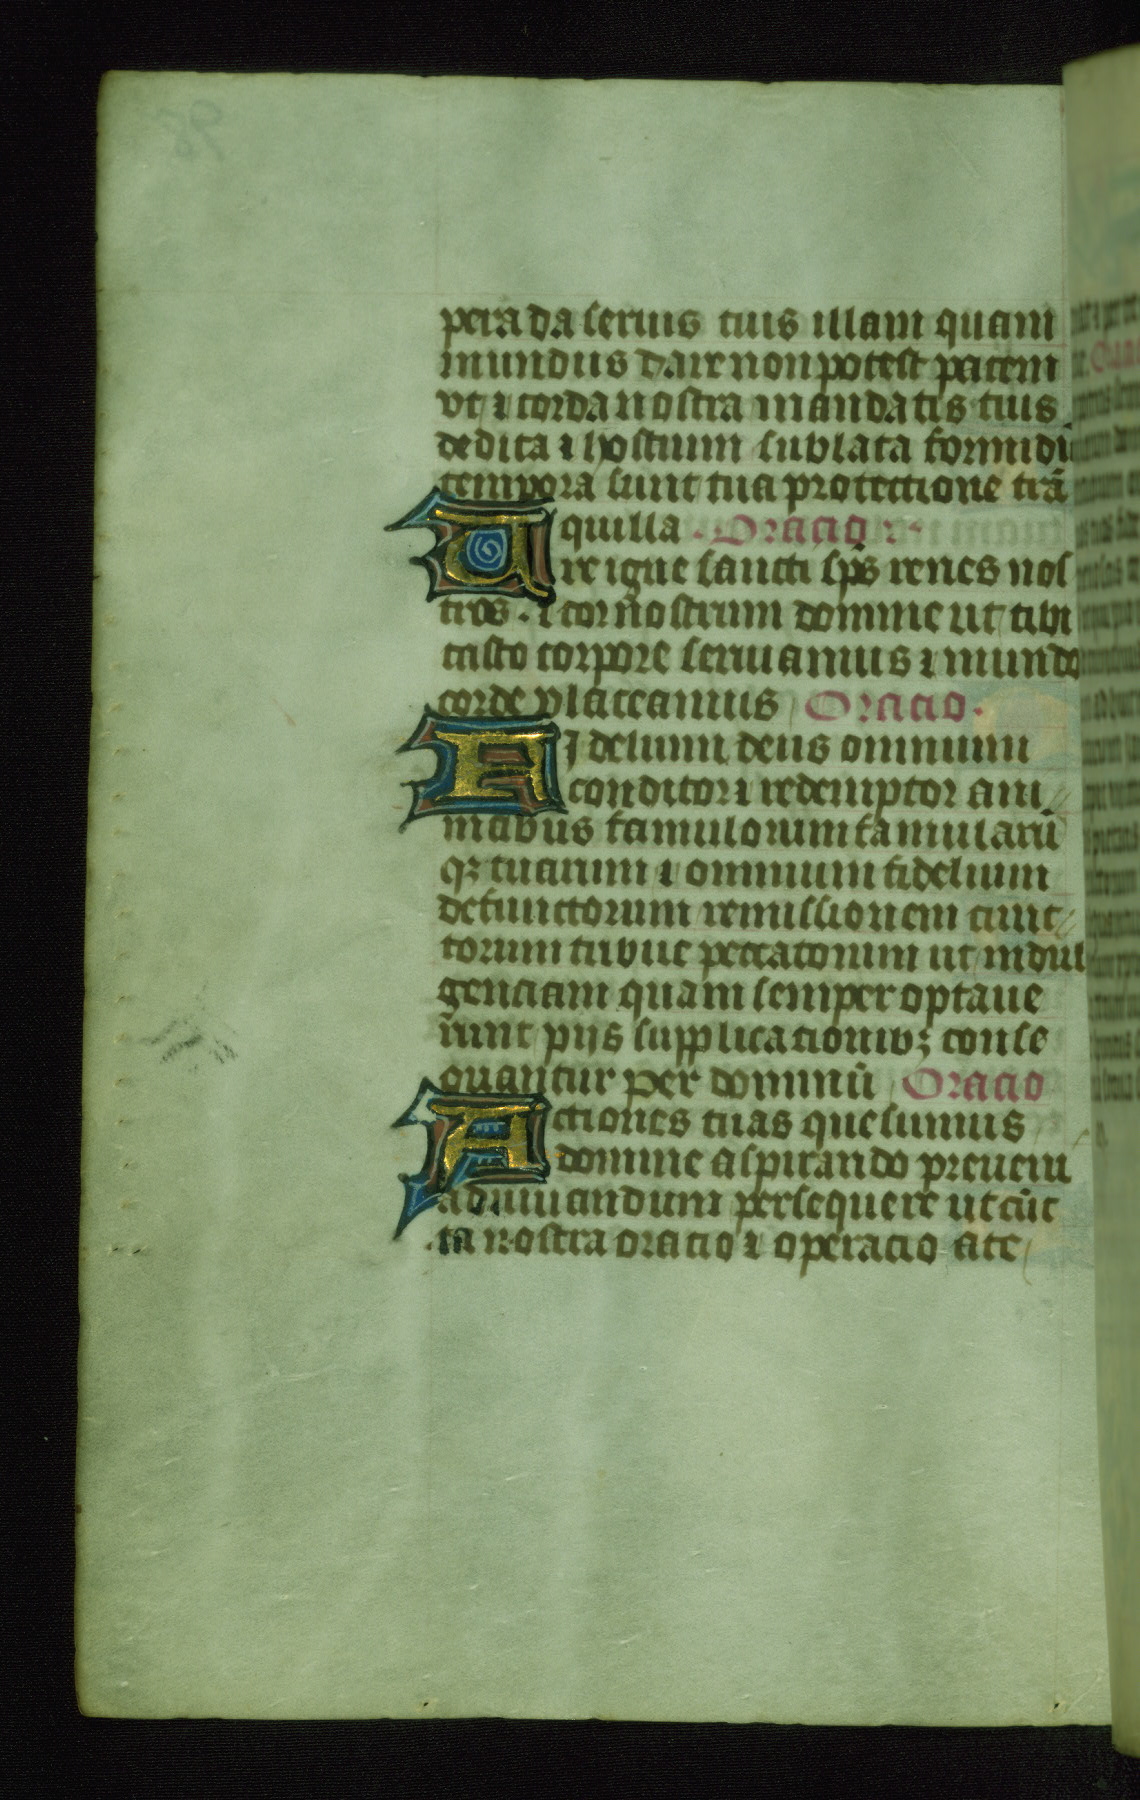 pera da seruis tuis illam quam
mundus dare non potest pacem
vt ⁊ corda nostra mandatis tuis
dedita ⁊ hostium sublata formidi
tempora sunt tua protectione trā
quilla · Oracio · ·
Ure igne sancti sp̄s renes nos
tros · ⁊ cor nostrum domine ut tibi
casto corpore seruiamus ⁊ mundo
corde placeamus Oracio ·
Fidelium deus omnium
conditor ⁊ redemptor ani
mabus famulorum famularū
qꝫ tuarum ⁊ omnium fidelium
defunctorum remissionem cunc
torum tribue peccatorum ut indul
genciam quam semper optaue
runt piis supplicacionibꝫ conse
quantur per dominū Oracio
Actiones tuas quesumus
domine aspirando preueni
adiuuandum persequere ut cūc
ta nostra oracio ⁊ operacio a te